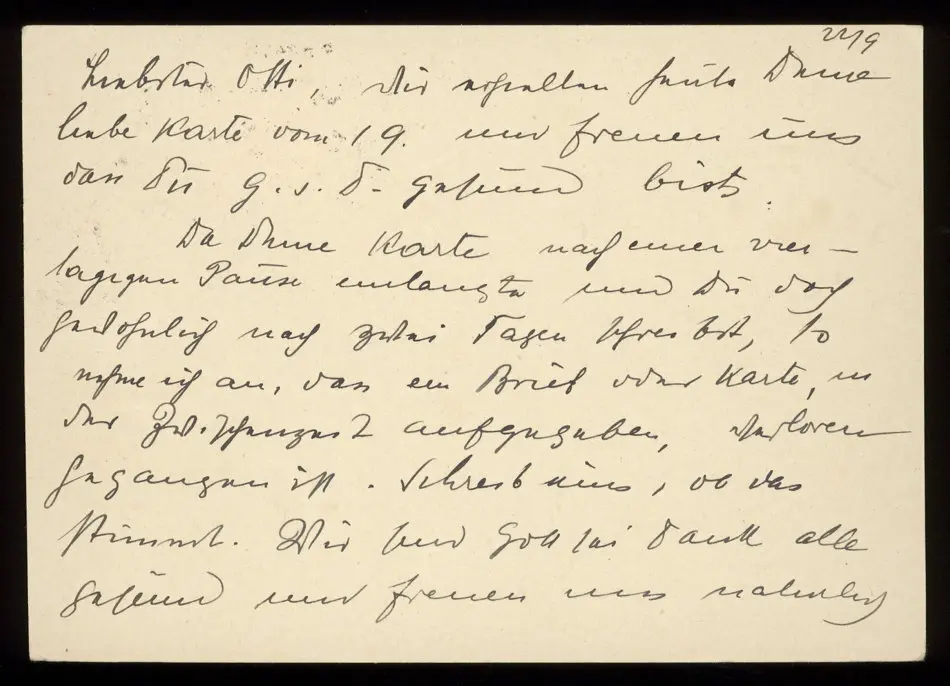 22/9
Liebster Otti, Wir erhielten heute Deine
liebe Karte vom 19. und freuen uns
dass Du G. s. D. gesund bist.
Da Deine Karte nach einer vier-
tägigen Pause einlangte und Du doch
gewöhnlich nach zwei Tagen schreibst, so
nehme ich an, dass ein Brief oder Karte, in
der Zwischenzeit aufgegeben, verloren
gegangen ist. Schreib uns, ob das
stimmt. Wir sind Gott sei Dank alle
gesund und freuen uns natürlich